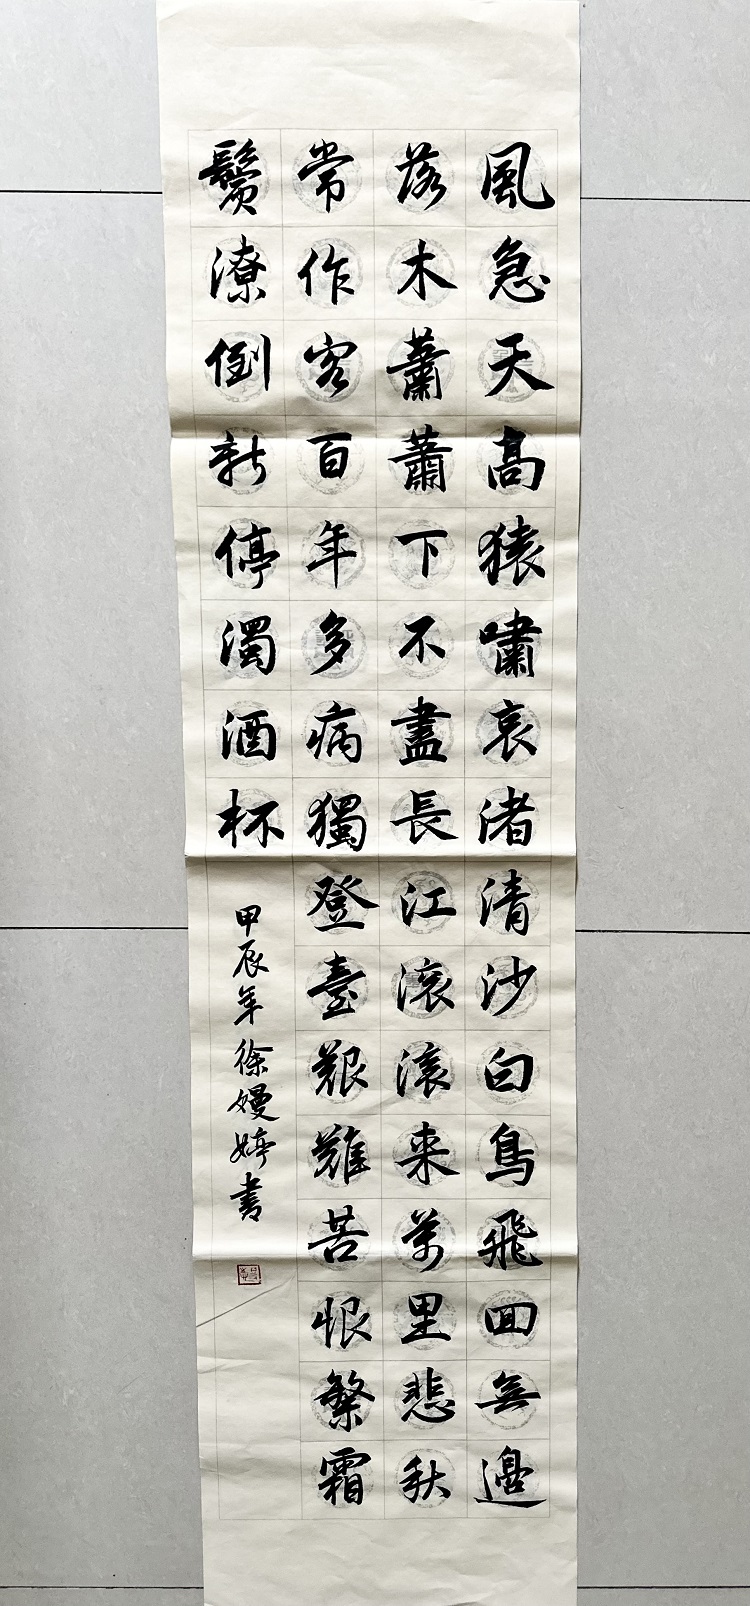 風急天高猿嘯哀渚清沙白鳥飛回無邊
落木蕭蕭下不盡長江滾滾来萬里悲秋
常作客百年多病獨登臺艱難苦恨繁霜
鬢潦倒新停濁酒杯
甲辰年徐嫚婷書